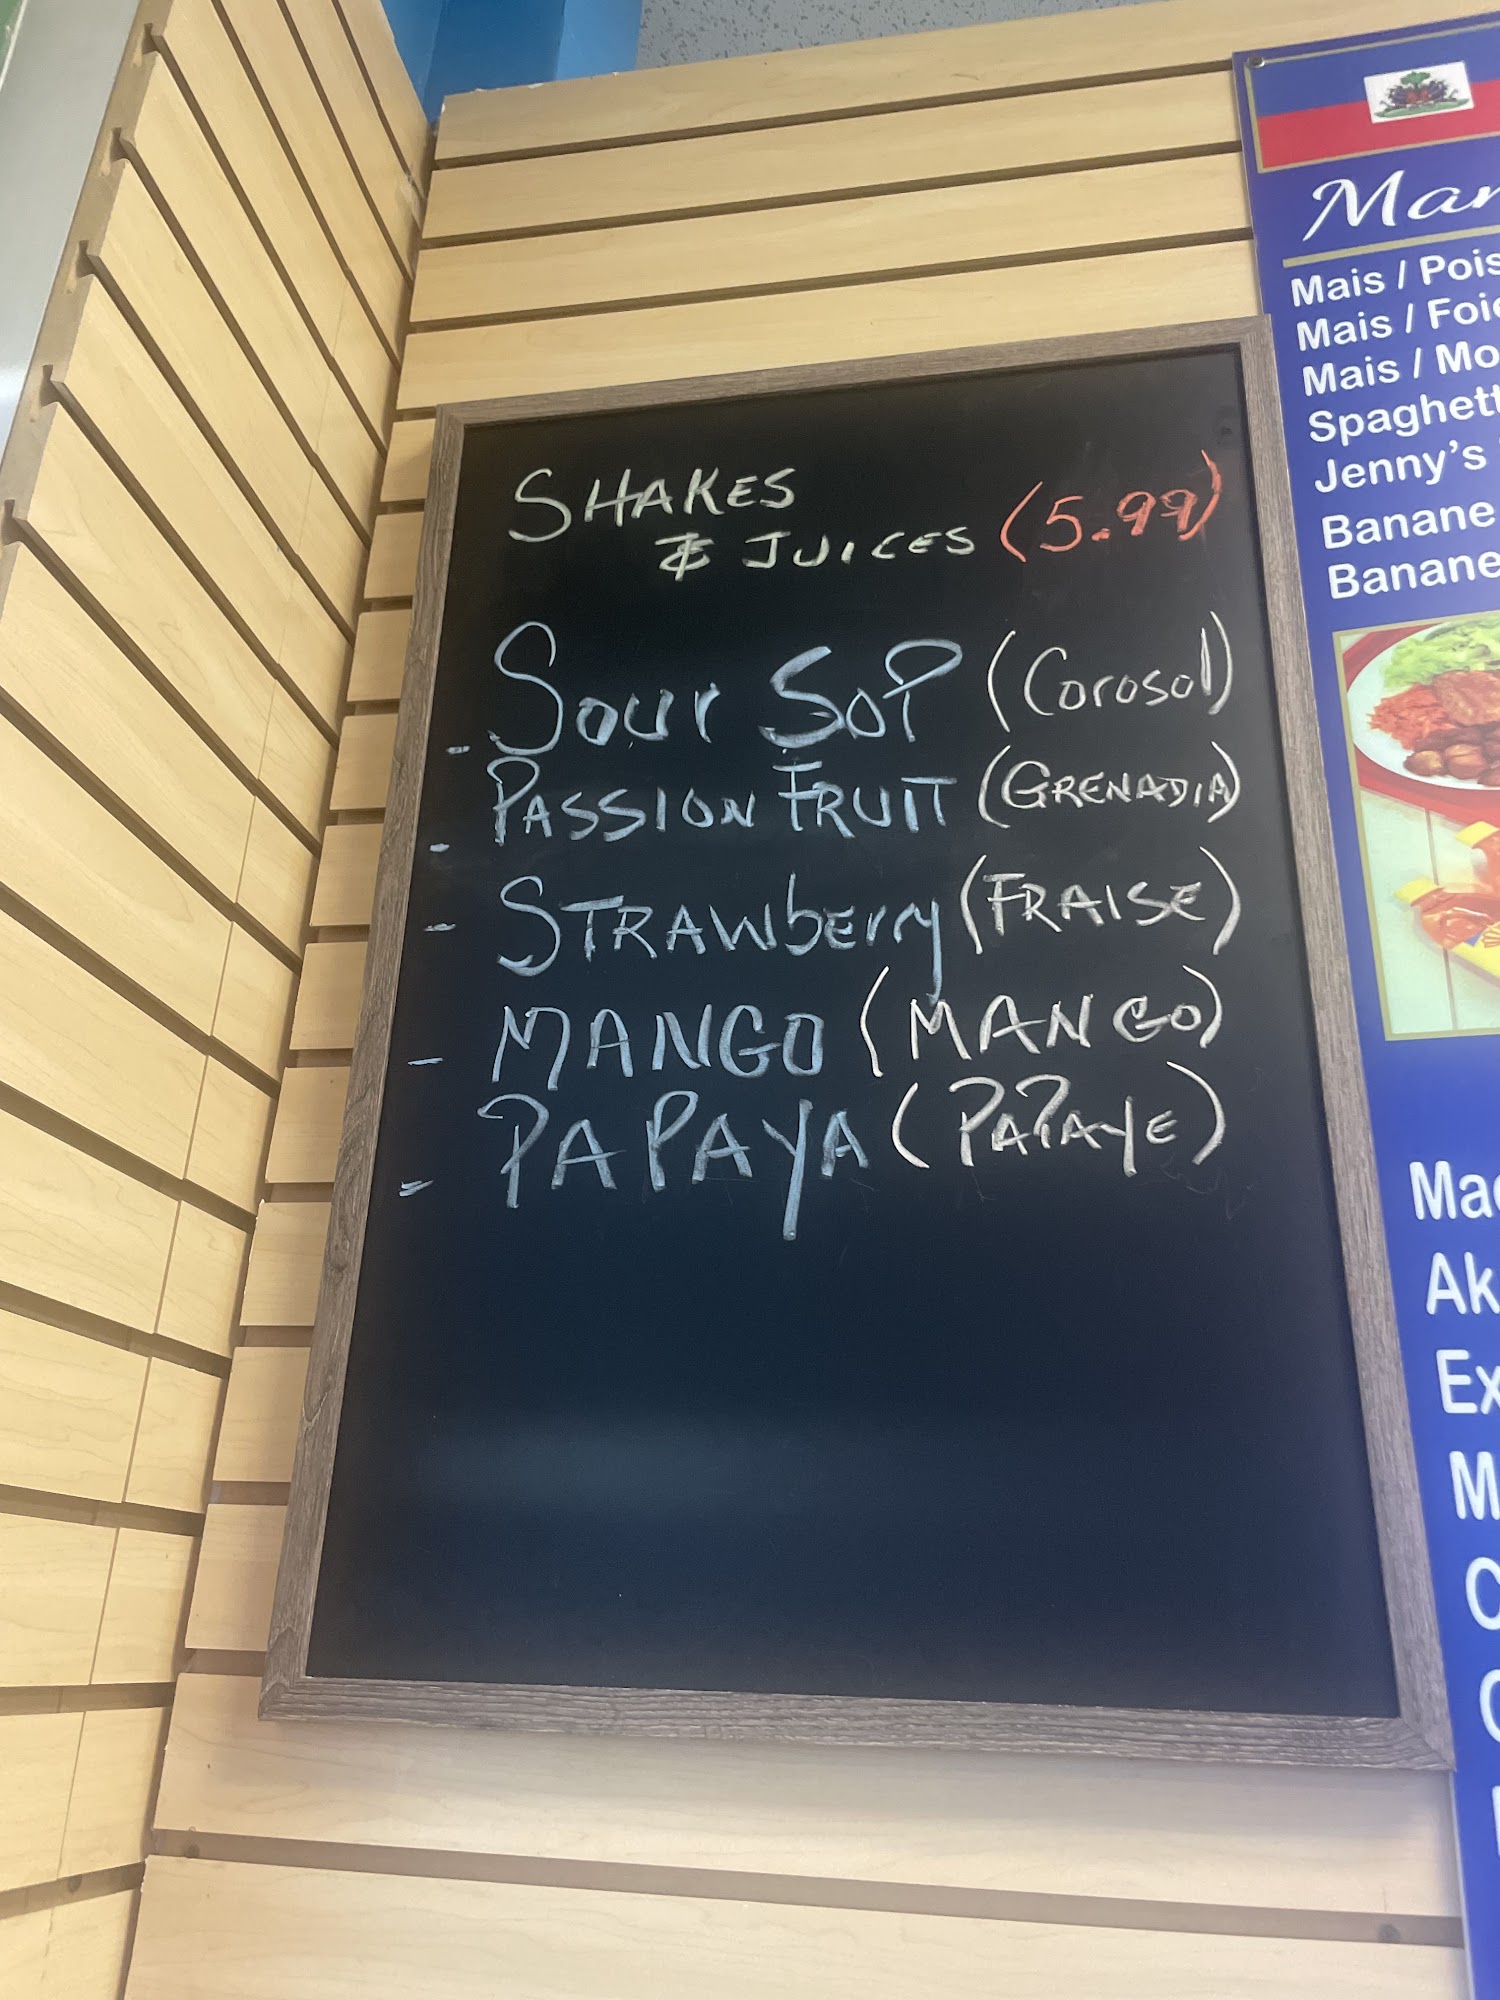 SHAKES
& JUICES (5.99)
- Sour SoP (Corosol)
- PASSION FRUIT (GRENADIA)
- STRAWberry (FRAISE)
- MANGO (MANGO)
- PAPAYA (PAPAYE)
Mais / Pois
Mais /
Mais /
Jenny's
Banane
Banane